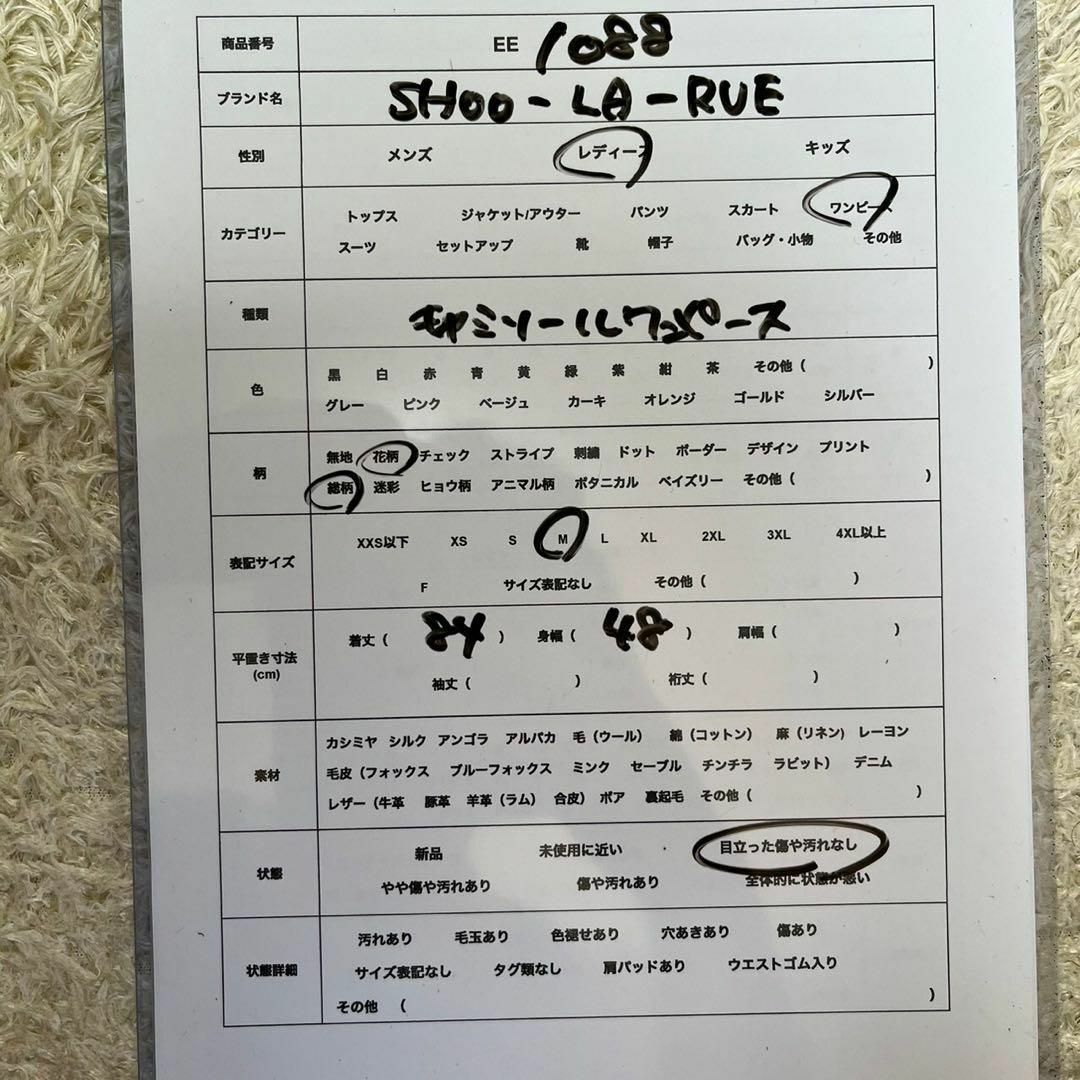 商品番号 EE 1088
ブランド名 SHOO-LA-RUE
性別 メンズ レディース キッズ
カテゴリー
トップス ジャケット/アウター パンツ スカート ワンピース
スーツ セットアップ 靴 帽子 バッグ・小物 その他
種類 キャミソールワンピース
色
黒 白 赤 青 黄 緑 紫 紺 茶 その他 ( )
グレー ピンク ベージュ カーキ オレンジ ゴールド シルバー
柄
無地 花柄 チェック ストライプ 刺繍 ドット ボーダー デザイン プリント
総柄 迷彩 ヒョウ柄 アニマル柄 ボタニカル ペイズリー その他 ( )
表記サイズ
XXS以下 XS S M L XL 2XL 3XL 4XL以上
F サイズ表記なし その他 ( )
平置き寸法
(cm)
着丈 ( 84 ) 身幅 ( 48 ) 肩幅 ( )
袖丈 ( ) 裄丈 ( )
素材
カシミヤ シルク アンゴラ アルパカ 毛（ウール） 綿（コットン） 麻（リネン) レーヨン
毛皮（フォックス ブルーフォックス ミンク セーブル チンチラ ラビット） デニム
レザー（牛革 豚革 羊革（ラム） 合皮） ボア 裏起毛 その他 ( )
状態
新品 未使用に近い 目立った傷や汚れなし
やや傷や汚れあり 傷や汚れあり 全体的に状態が悪い
状態詳細
汚れあり 毛玉あり 色褪せあり 穴あきあり 傷あり
サイズ表記なし タグ類なし 肩パッドあり ウエストゴム入り
その他 ( )